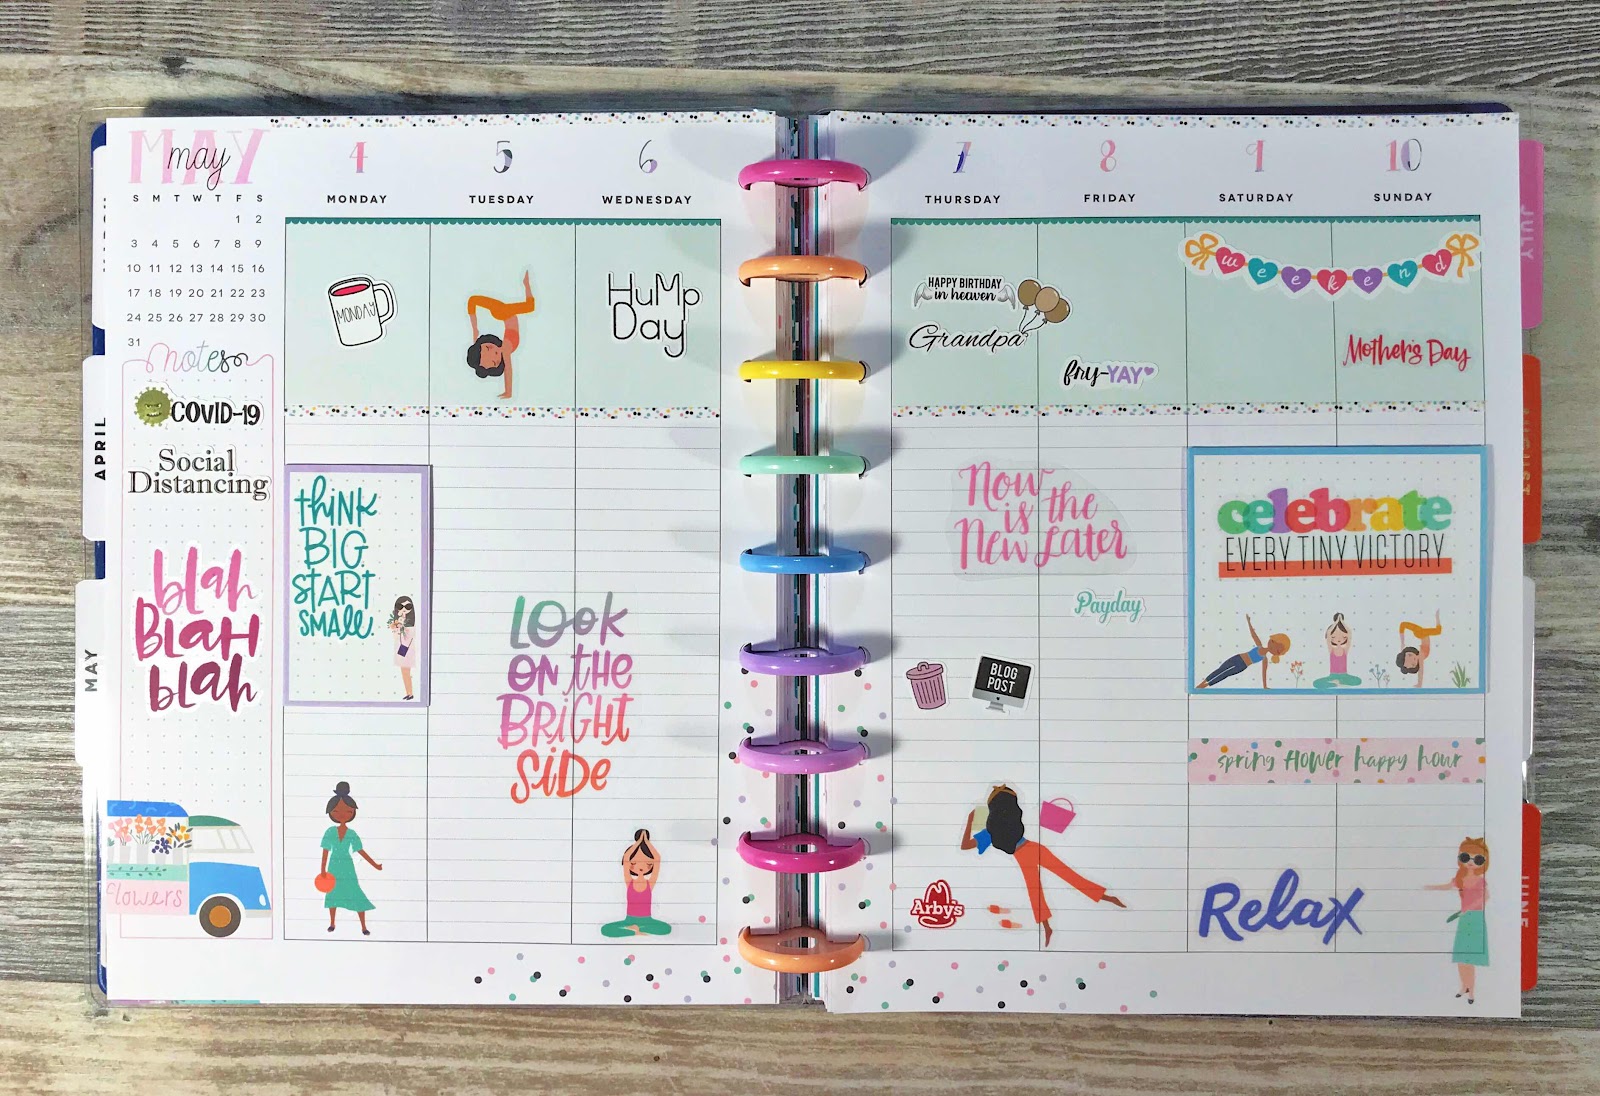 MAY
may
S M T W T F S
1 2
3 4 5 6 7 8 9
10 11 12 13 14 15 16
17 18 19 20 21 22 23
24 25 26 27 28 29 30
31
notes
COVID-19
Social
Distancing
blah
BLAH
blah
flowers
APRIL
MAY
4
MONDAY
5
TUESDAY
6
WEDNESDAY
MONDAY
HuMp
Day
think
BIG
start
small.
LOok
ON the
BRiGHT
SiDe
7
THURSDAY
8
FRIDAY
9
SATURDAY
10
SUNDAY
HAPPY BIRTHDAY
in heaven
Grandpa
fry-YAY
weekend
Mother's Day
Now
is the
New Later
Payday
BLOG
POST
Arby's
celebrate
EVERY TINY VICTORY
spring flower happy hour
Relax
JULY
AUGUST
JUNE